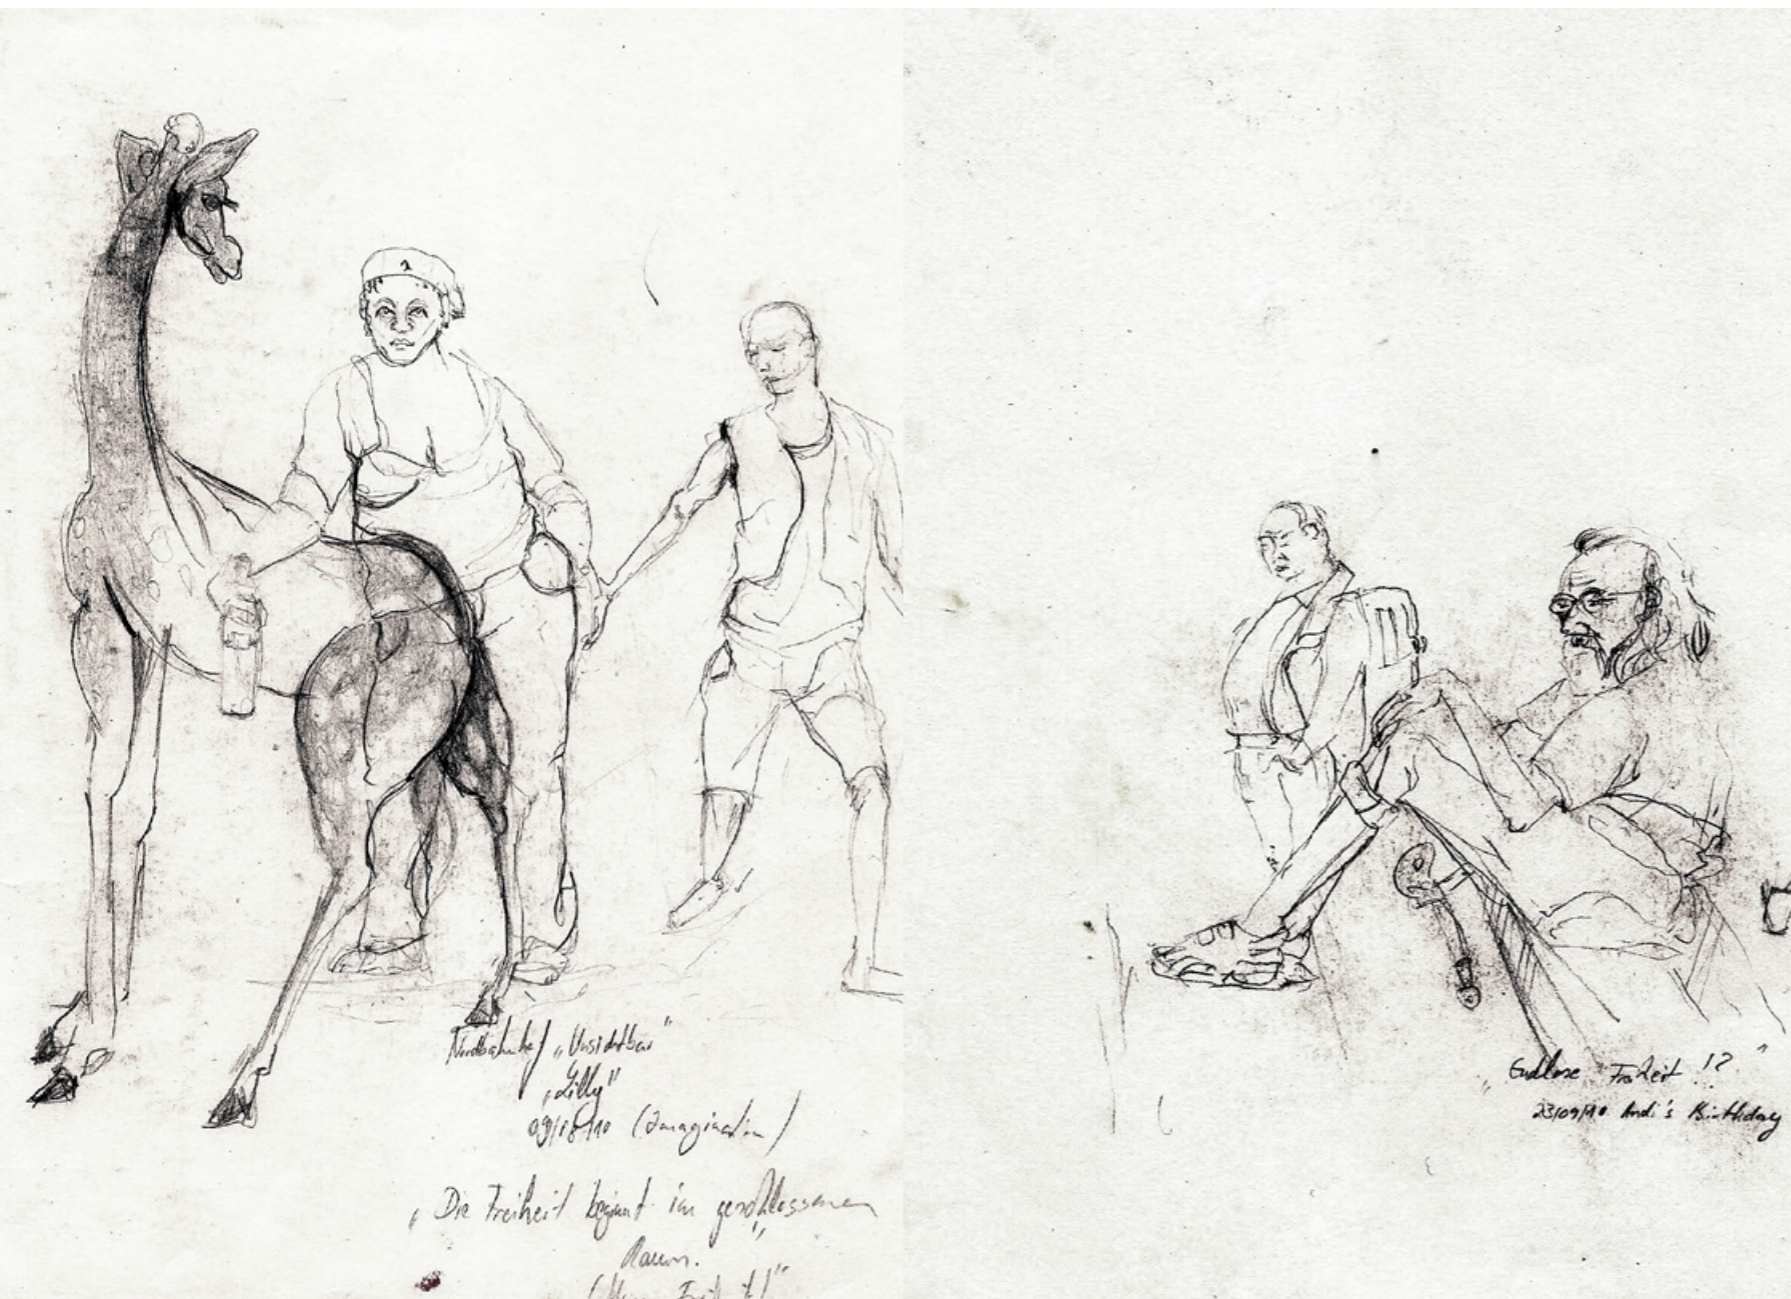 Nordbahnhof „Unsichtbar"
„Lilly"
09/08/10 (Imagination)
„Die Freiheit beginnt im geschlossenen
Raum."
„Endlose Freiheit !?"
23/09/10 Andi's Birthday